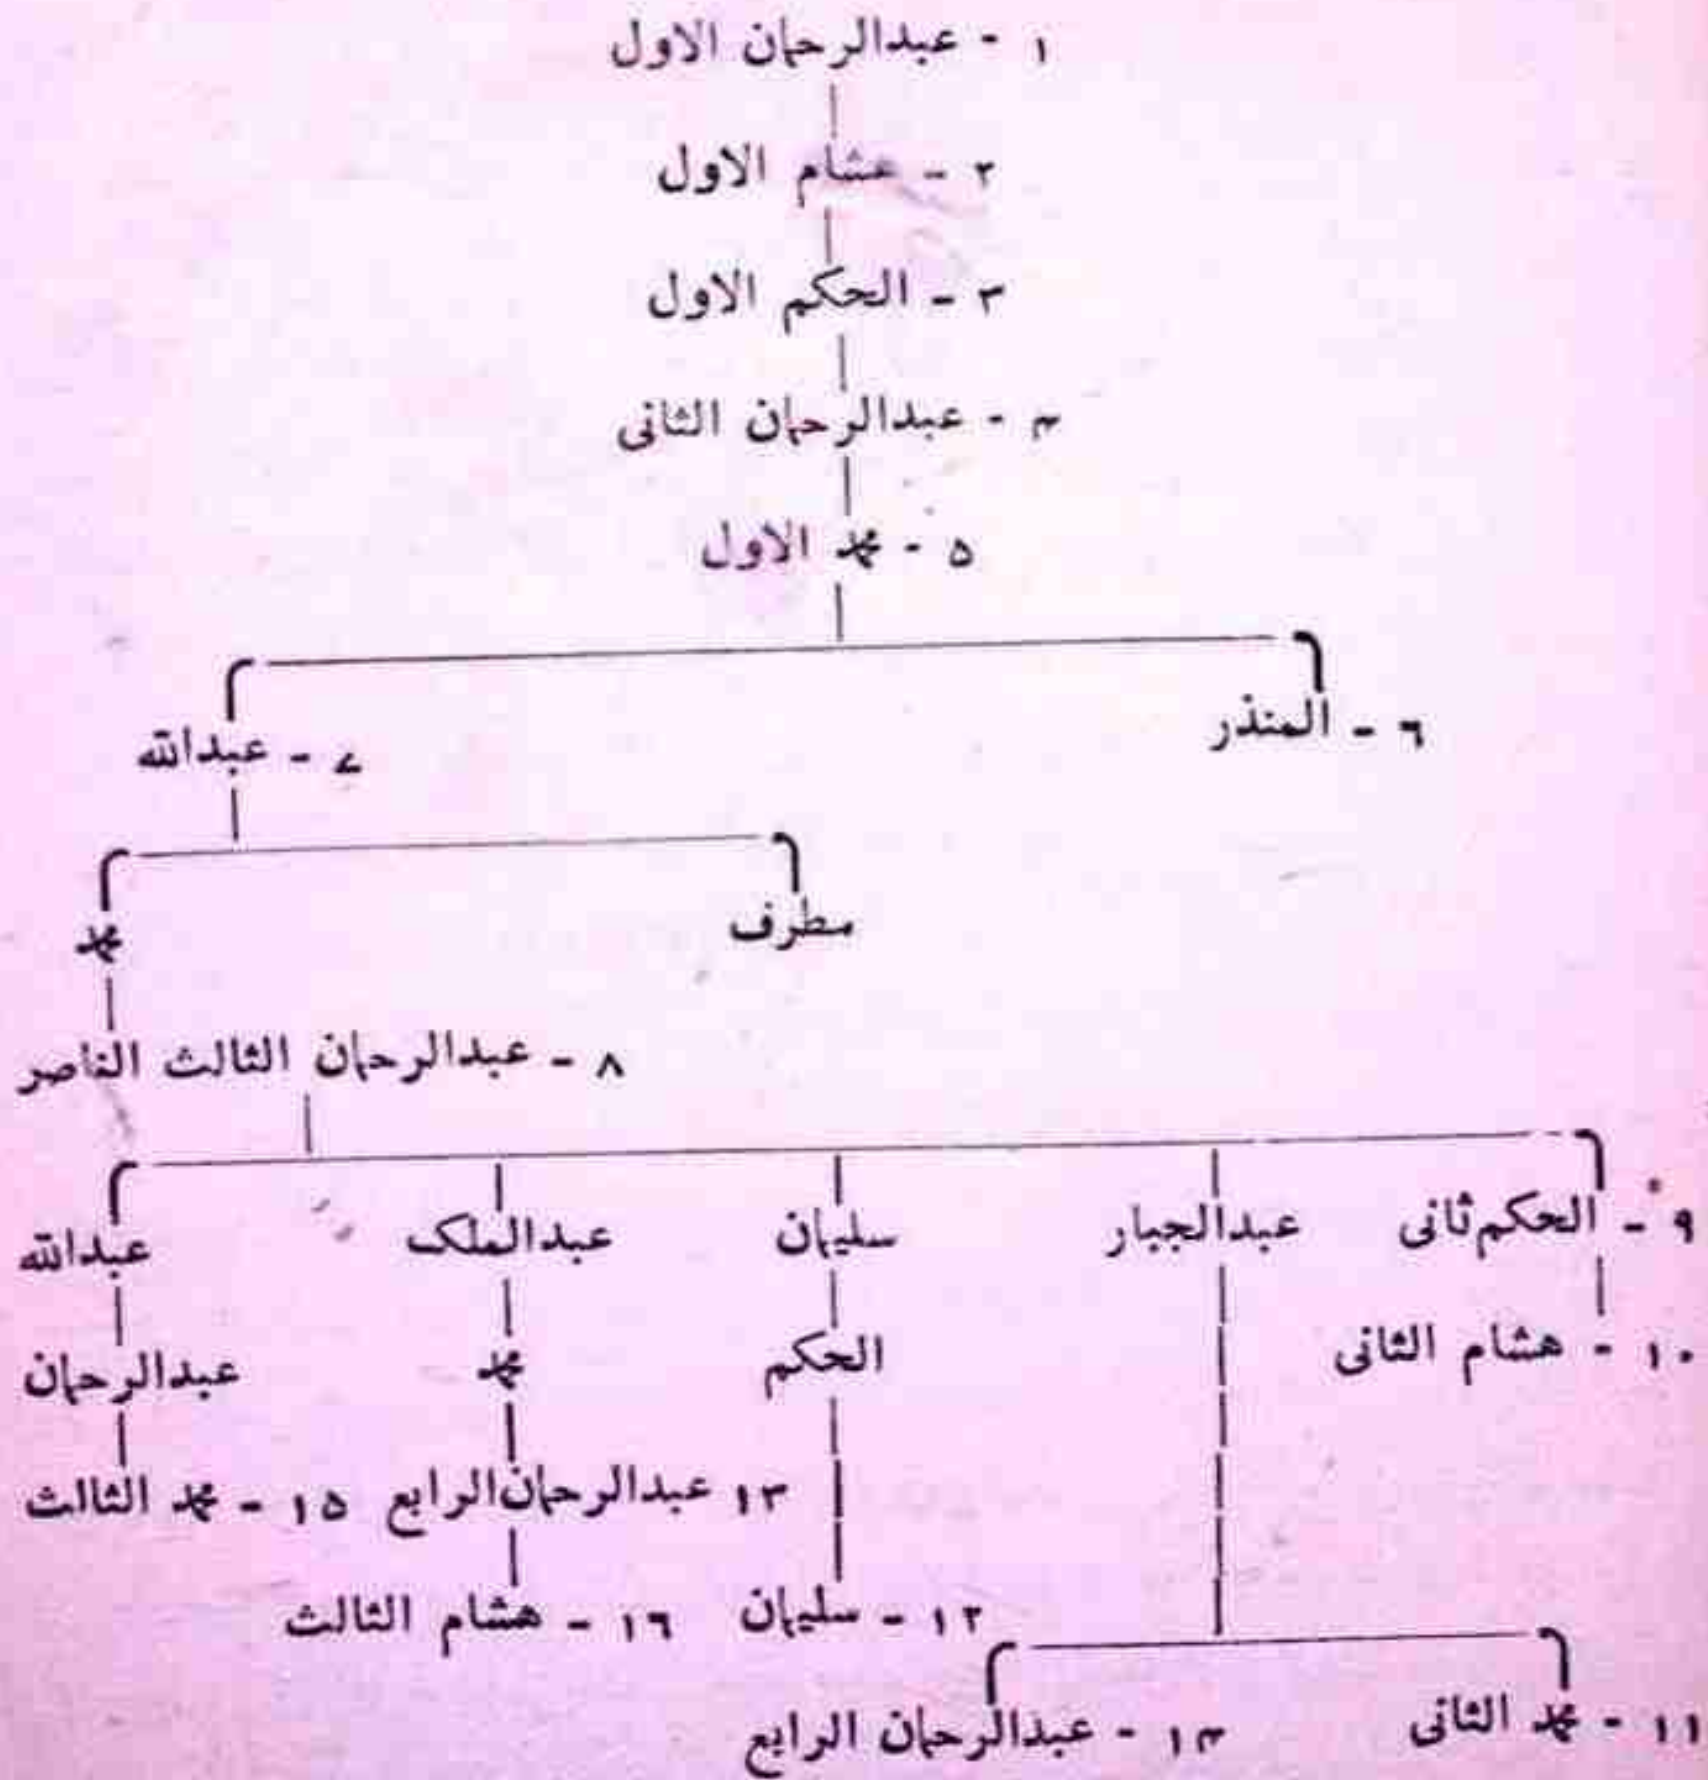 ۱ - عبدالرحمان الاول
۲ - ہشام الاول
۳ - الحکم الاول
۴ - عبدالرحمان الثانی
۵ - محمد الاول
۶ - المنذر
۷ - عبداللہ
مطرف
محمد
۸ - عبدالرحمان الثالث الناصر
۹ - الحکم ثانی
عبدالجبار
سلیمان
عبدالملک
عبداللہ
۱۰ - ہشام الثانی
الحکم
محمد
عبدالرحمان
۱۳ عبدالرحمان الرابع
۱۵ - محمد الثالث
۱۲ - سلیمان
۱۶ - ہشام الثالث
۱۱ - محمد الثانی
۱۴ - عبدالرحمان الرابع